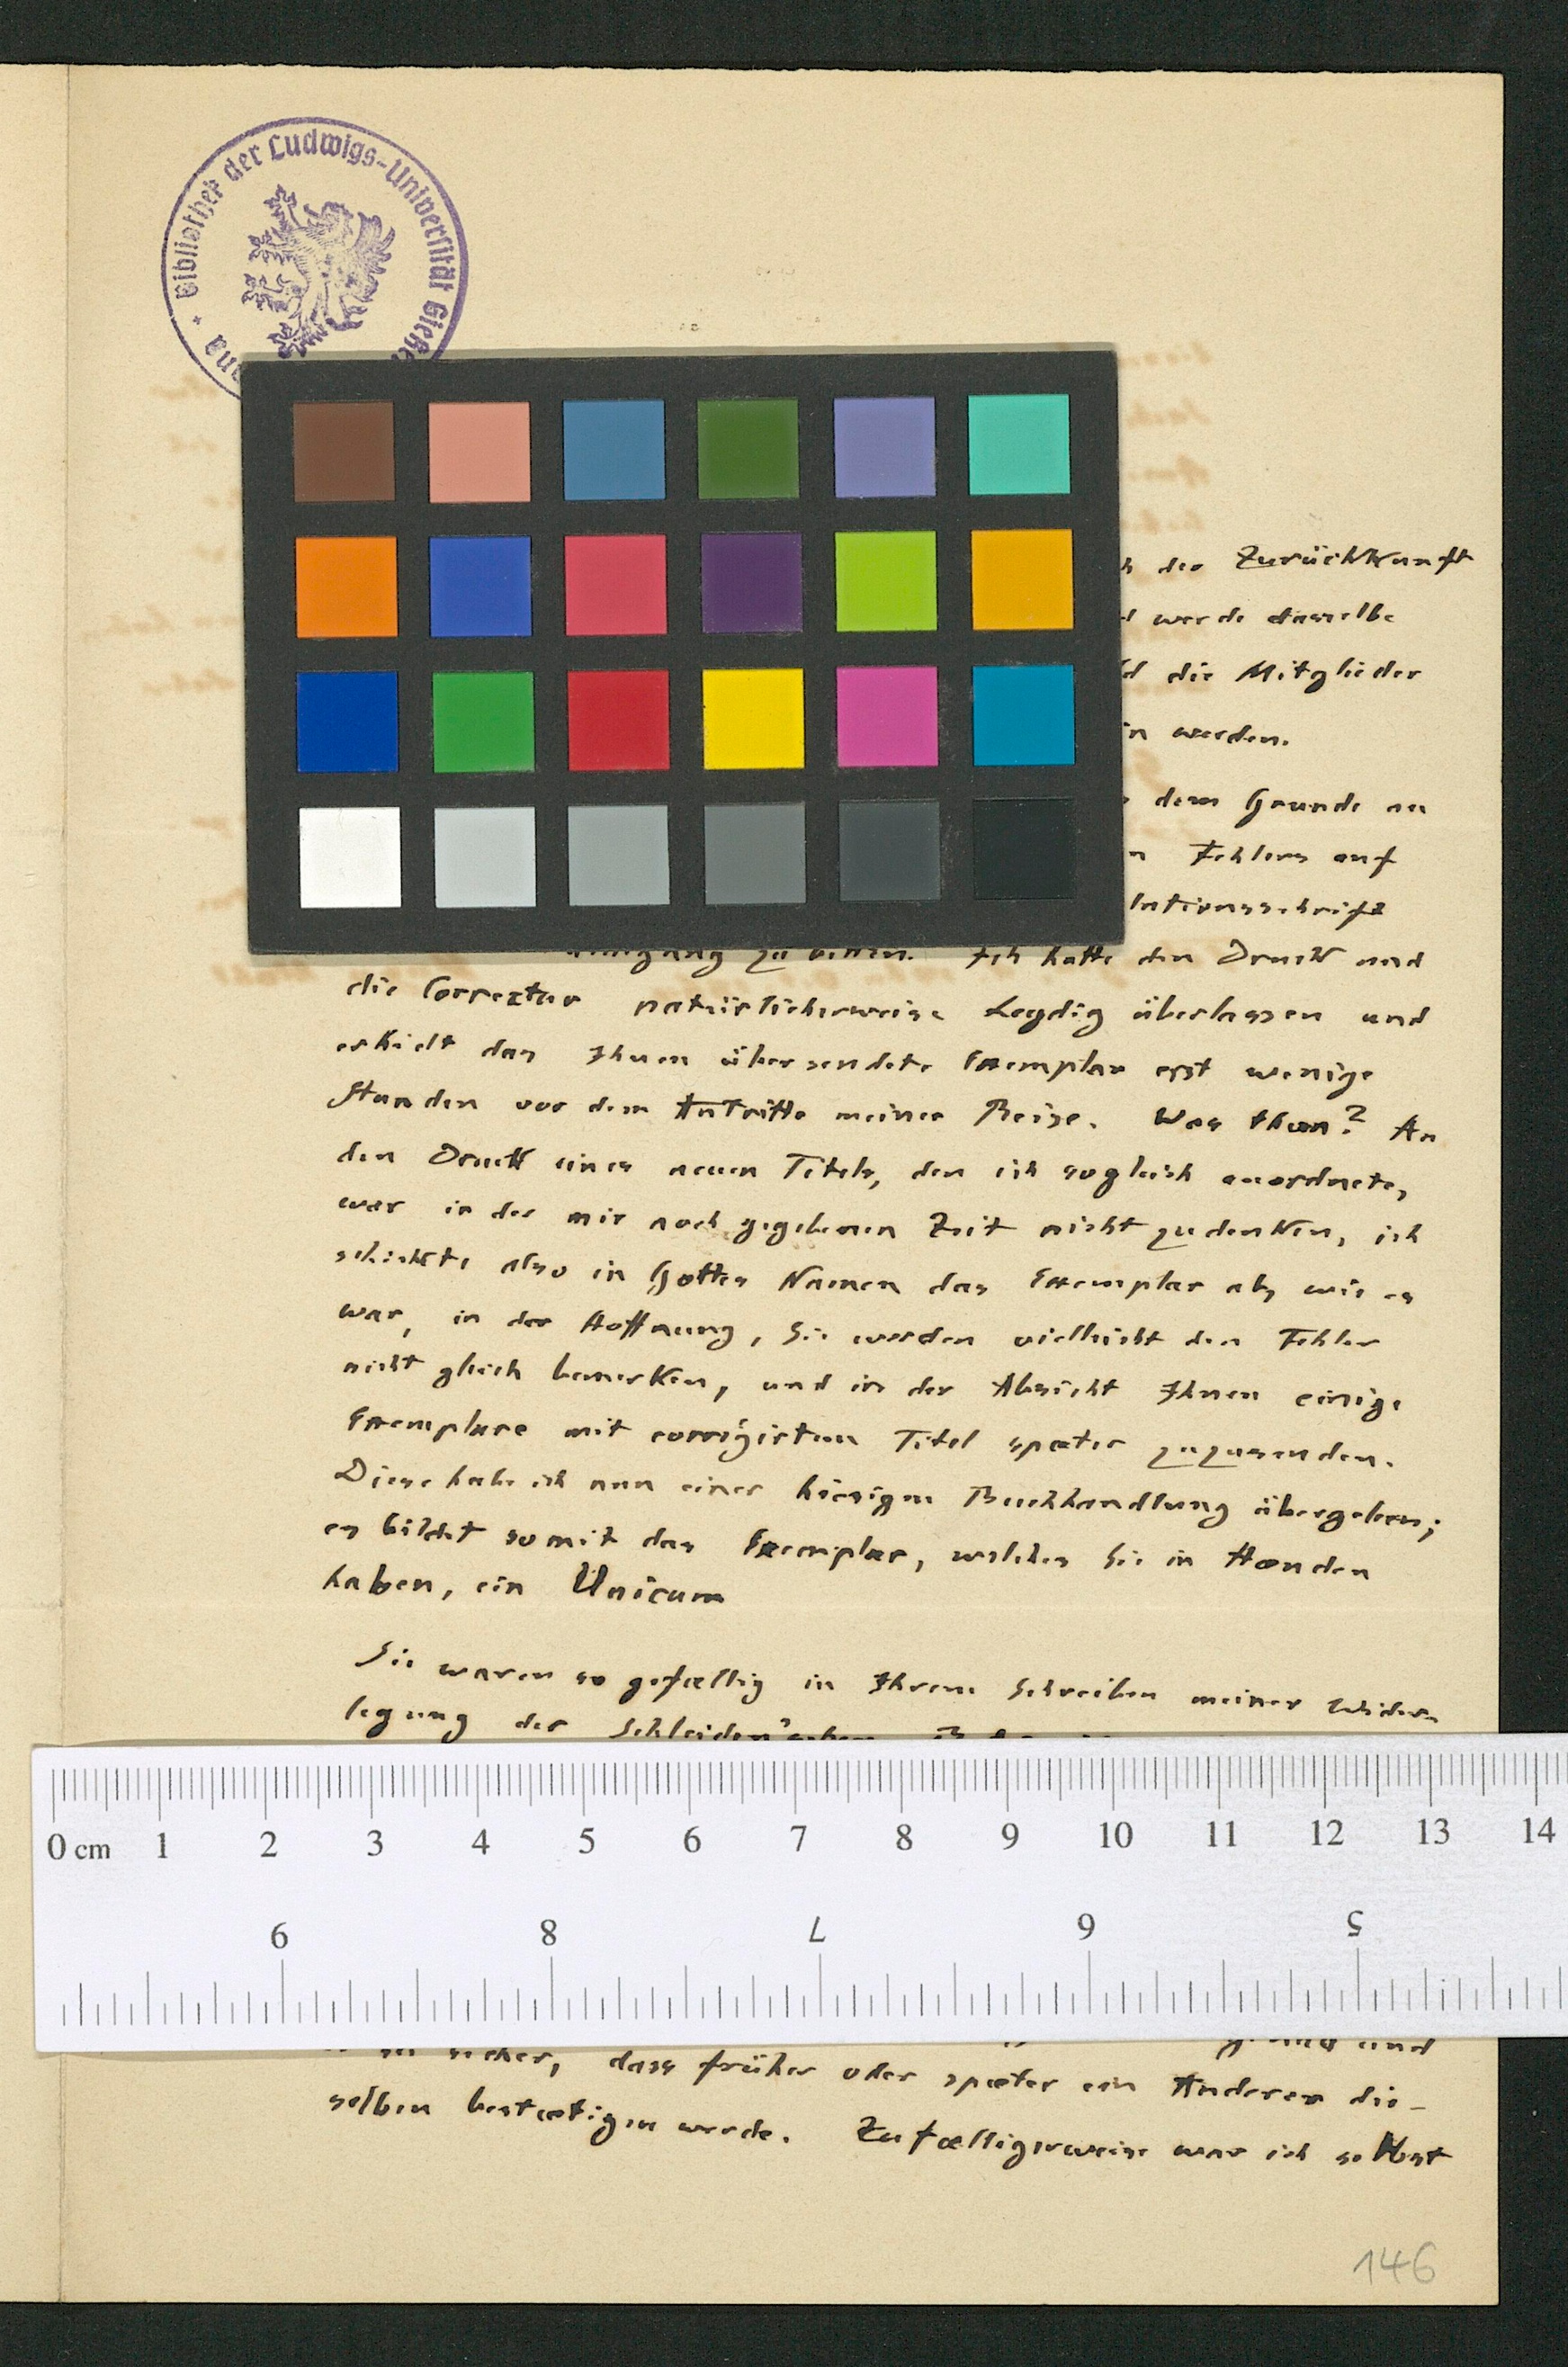 Bibliothek der Ludwigs-Universität Gieße
der Zurückkunft
werde dasselbe
die Mitglieder
werden.
dem Grunde an
Fehlers auf
lationsschrift
zu bitten. Ich hatte den Druck und
die Correctur natürlicherweise Leydig überlassen und
erhielt das Ihnen übersendete Exemplar erst wenige
Stunden vor dem Antritte meiner Reise. Was thun? An
den Druck eines neuen Titels, den ich sogleich anordnete,
war in der mir noch gegebenen Zeit nicht zu denken, ich
schickte also in Gottes Namen das Exemplar ab, wie es
war, in der Hoffnung, Sie werden vielleicht den Fehler
nicht gleich bemerken, und in der Absicht Ihnen einige
Exemplare mit corrigirtem Titel spæter zuzusenden.
Diese habe ich nun einer hiesigen Buchhandlung übergeben;
es bildet somit das Exemplar, welches Sie in Hænden
haben, ein Unicum
Sie waren so gefællig in Ihrem Schreiben meiner Wider-
legung der Schleiden'schen
0 cm 1 2 3 4 5 6 7 8 9 10 11 12 13 14
9 8 7 6 5
und
sicher, dass früher oder spæter ein Anderer die-
selben bestætigen werde. Zufælligerweise war ich selbst
146